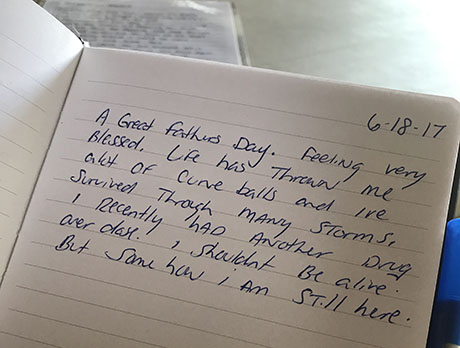 6-18-17
A Great Fathers Day. Feeling very
Blessed. Life has Thrown me
alot of Curve balls and ive
Survived Through MANY STORMS,
I Recently HAD ANother DRUG
over dose. I shouldnt Be alive.
But Some how i Am STill here.